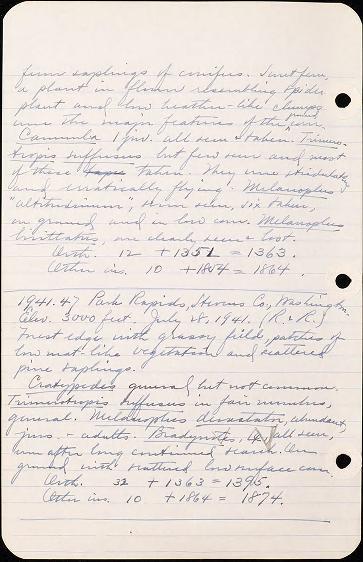 few saplings of conifers. Sweet fern,
a plant in flower resembling spider
plant and low heather-like clumps
were the major features of the cover.
Camnula 1 juv. all seen & taken. Trimero-
tropis suffusus but few seen and most
of these taken. They were stridulating
and erratically flying. Melanoplus
"altitudinum", seen, six taken,
on ground and in low cover. Melanoplus
bivittatus, one clearly seen & lost.
Orth. 12 + 1351 = 1363.
Other ins. 10 + 1854 = 1864.
1941.47 Park Rapids, Stevens Co., Washington.
Elev. 3000 feet. July 28, 1941. (R. & R.)
Forest edge with grassy field, patches of
low mat-like vegetation and scattered
pine saplings.
Cratypedes general, but not common.
Trimerotropis suffusus in fair numbers,
general. Melanoplus devastator, abundant,
juvs. - adults. Bradynotes, all seen,
ground with scattered low surface cover.
Orth. 32 + 1363 = 1395.
Other ins. 10 + 1864 = 1874.